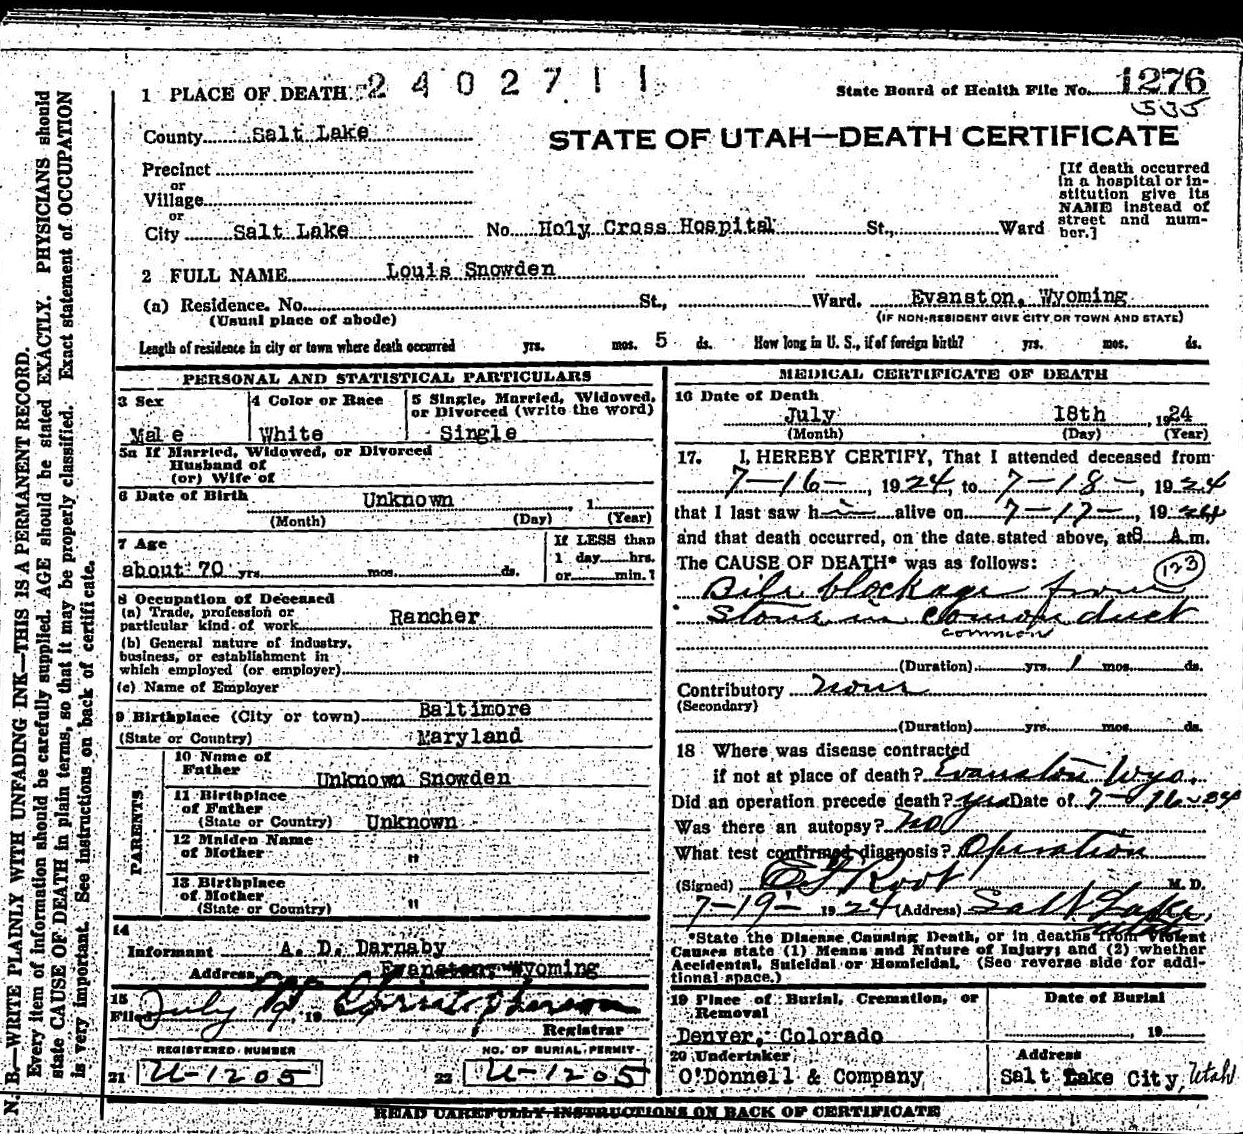 1 PLACE OF DEATH 2402711
State Board of Health File No. 1276
535
County Salt Lake
STATE OF UTAH—DEATH CERTIFICATE
Precinct
or
Village
or
City Salt Lake No. Holy Cross Hospital St., Ward
[If death occurred
in a hospital or in-
stitution give its
NAME instead of
street and num-
ber.]
2 FULL NAME Louis Snowden
(a) Residence. No. St., Ward. Evanston, Wyoming
(Usual place of abode) (IF NON-RESIDENT GIVE CITY OR TOWN AND STATE)
Length of residence in city or town where death occurred yrs. mos. 5 ds. How long in U. S., if of foreign birth? yrs. mos. ds.
PERSONAL AND STATISTICAL PARTICULARS
3 Sex
Male
4 Color or Race
White
5 Single, Married, Widowed,
or Divorced (write the word)
Single
5a If Married, Widowed, or Divorced
Husband of
(or) Wife of
6 Date of Birth Unknown , 1
(Month) (Day) (Year)
7 Age
about 70 yrs. mos. ds.
If LESS than
1 day hrs.
or min.?
8 Occupation of Deceased
(a) Trade, profession or
particular kind of work Rancher
(b) General nature of industry,
business, or establishment in
which employed (or employer)
(c) Name of Employer
9 Birthplace (City or town) Baltimore
(State or Country) Maryland
PARENTS
10 Name of
Father Unknown Snowden
11 Birthplace
of Father
(State or Country) Unknown
12 Maiden Name
of Mother "
13 Birthplace
of Mother
(State or Country) "
14
Informant A. D. Darnaby
Address Evanston, Wyoming
15
Filed July 19 Christopherson
Registrar
REGISTERED NUMBER
21 U-1205
NO. OF BURIAL PERMIT
22 U-1205
MEDICAL CERTIFICATE OF DEATH
16 Date of Death
July 18th , 1924
(Month) (Day) (Year)
17. I, HEREBY CERTIFY, That I attended deceased from
7-16- , 1924, to 7-18- , 1924
that I last saw h im alive on 7-17- , 1924
and that death occurred, on the date stated above, at 8 A.m.
The CAUSE OF DEATH* was as follows: 123
Bile blockage from
stone in comon duct
common
(Duration) yrs. 1 mos. ds.
Contributory none
(Secondary)
(Duration) yrs. mos. ds.
18 Where was disease contracted
if not at place of death? Evanston Wyo.
Did an operation precede death? yes Date of 7-16-24
Was there an autopsy? no
What test confirmed diagnosis? Operation
(Signed) Root M. D.
7-19- 1924 (Address) Salt Lake,
Utah
*State the Disease Causing Death, or in deaths from Violent
Causes state (1) Means and Nature of Injury; and (2) whether
Accidental, Suicidal or Homicidal. (See reverse side for addi-
tional space.)
19 Place of Burial, Cremation, or
Removal
Denver, Colorado
Date of Burial
, 19
20 Undertaker
O'Donnell & Company
Address
Salt Lake City, Utah
READ CAREFULLY INSTRUCTIONS ON BACK OF CERTIFICATE
N. B.—WRITE PLAINLY WITH UNFADING INK—THIS IS A PERMANENT RECORD.
Every item of information should be carefully supplied. AGE should be stated EXACTLY. PHYSICIANS should
state CAUSE OF DEATH in plain terms, so that it may be properly classified. Exact statement of OCCUPATION
is very important. See instructions on back of certificate.